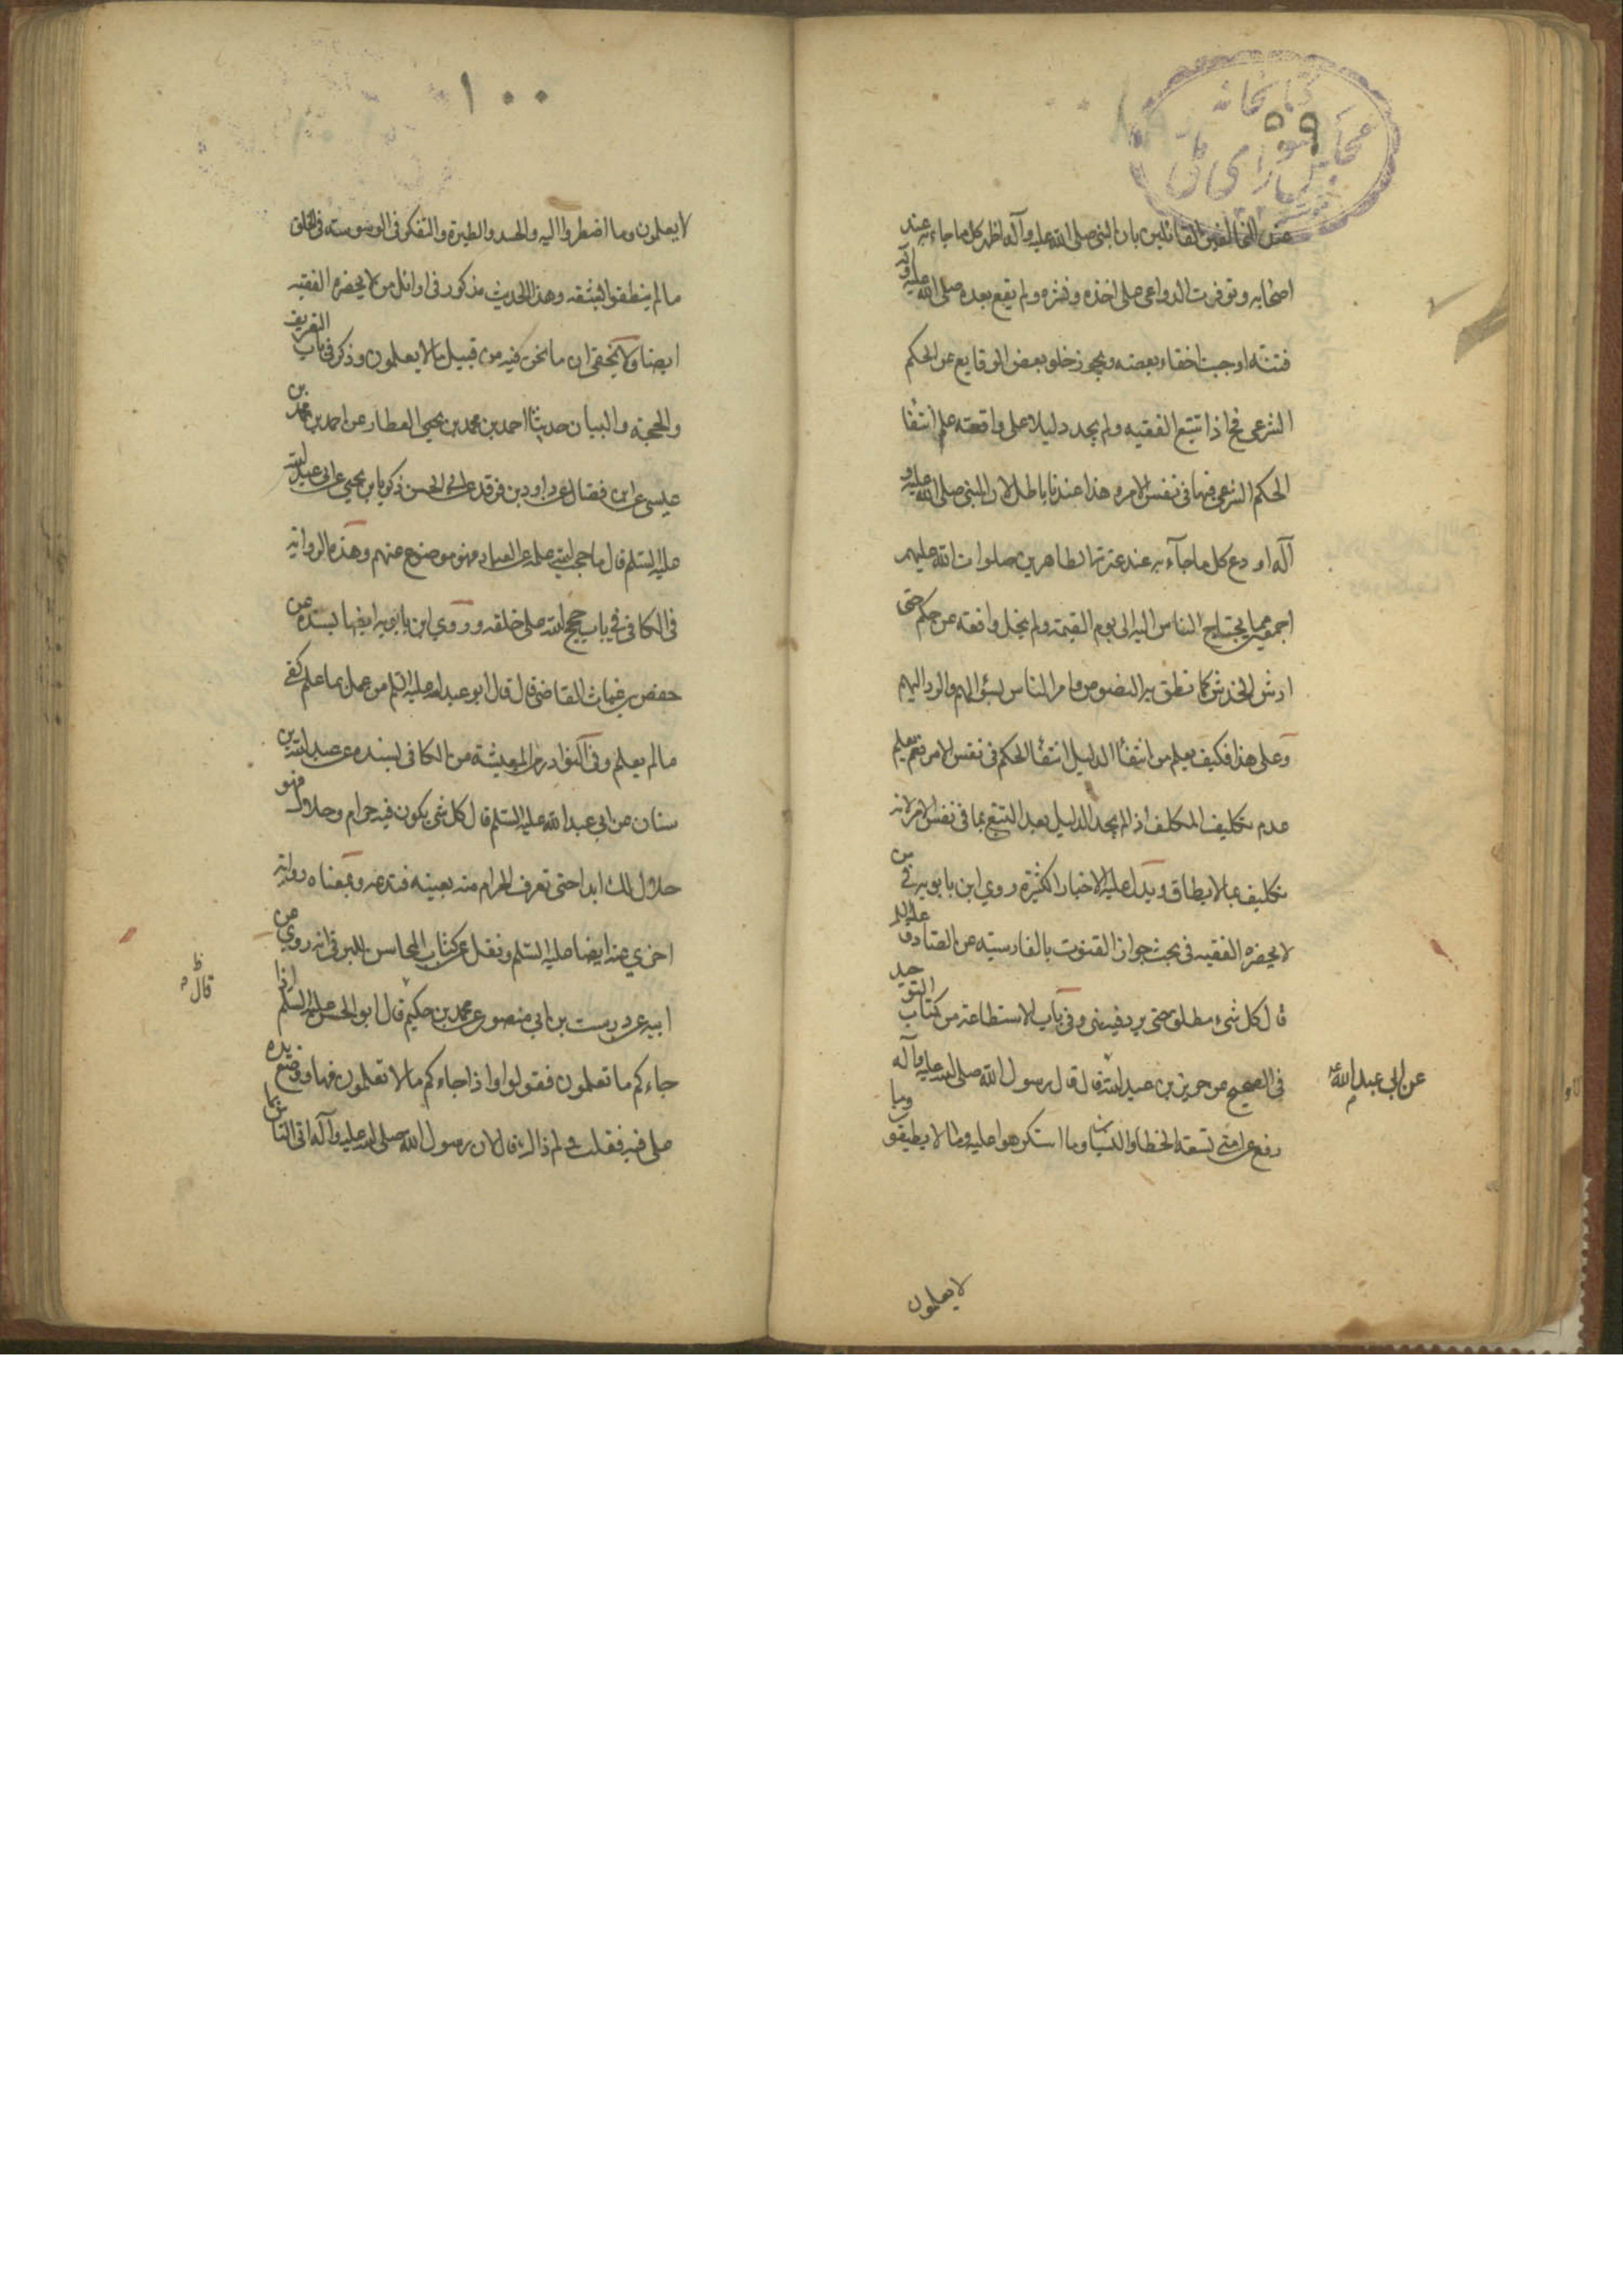 كتابخانه
مجلس شورای ملی
عند المخالفين القائلين بان النبي صلى الله عليه وآله اظهر كل ما جاء به عند
اصحابه وتوفرت الدواعي على اخذه ونشره ولم يقع بعده صلى الله عليه وآله
فتنة اوجبت اخفاء بعضه ويجوز خلو بعض الوقايع عن الحكم
الشرعي فح اذا تتبع الفقيه ولم يجد دليلا على واقعة علم انتفا
الحكم الشرعي فيها في نفس الامر وهذا عندنا باطل لان النبي صلى الله عليه و
آله اودع كل ما جاء به عند عترته الطاهرين صلوات الله عليهم
اجمعين مما يحتاج الناس اليه الى يوم القيمة ولم يخل واقعة عن حكم حتى
ارش الخدش كما نطق به النصوص وامر الناس بسؤالهم والرد اليهم
وعلى هذا فكيف يعلم من انتفأ الدليل انتفأ الحكم في نفس الامر نعم يعلم
عدم تكليف المكلف اذا لم يجد الدليل بعد التتبع بما في نفس الامر لانه
تكليف بما لا يطاق ويدل عليه الاخبار الكثيرة روي ابن بابويه في من
لا يحضره الفقيه في بحث جواز القنوت بالفارسية عن الصادق عليه السلم
قال كل شيء مطلق حتى يرد فيه نهي وفي باب الاستطاعة من كتاب التوحيد
في الصحيح عن حريز بن عبد الله قال قال رسول الله صلى الله عليه وآله
عن ابي عبد الله ع م
رفع عن امتي تسعة الخطا والنسيان وما استكرهوا عليه وما لا يطيقون وما
لا يعلمون
١٠٠
لا يعلمون وما اضطروا اليه والحسد والطيرة والتفكر في الوسوسة في الخلق
ما لم ينطقوا بشفة وهذا الحديث مذكور في اوائل من لا يحضره الفقيه
ايضا ولا يخفى ان ما نحن فيه من قبيل ما لا يعلمون وذكر في باب التعريف
والحجة والبيان حدثنا احمد بن محمد بن يحيي العطار عن احمد بن محمد بن
عيسى عن ابن فضال عن داود بن فرقد عن ابي الحسن زكريا بن يحيي عن ابي عبد الله
عليه السلم قال ما حجب الله علمه عن العباد فهو موضوع عنهم وهذه الرواية
في الكافي في باب حجج الله على خلقه وروي ابن بابويه ايضا بسنده عن
حفص بن غياث القاضي قال قال ابو عبد الله عليه السلم من عمل بما علم كفي
ما لم يعلم وفي النوادر من المعيشة من الكافي بسنده عن عبد الله بن
سنان عن ابي عبد الله عليه السلم قال كل شي يكون فيه حرام وحلال فهو
حلال لك ابدا حتى تعرف الحرام منه بعينه فتدعه وبمعناه رواية
اخري عنه ايضا عليه السلم ونقل عن كتاب المحاسن للبرقي انه روي عن
ابيه عن درست بن ابي منصور عن محمد بن حكيم قال ابو الحسن عليه السلم اذا
قال ظ م
جاءكم ما تعلمون فقولوا واذا جاءكم ما لا تعلمون فها ووضع يده
على فيه فقلت ولم ذاك قال لان رسول الله صلى الله عليه وآله اتى الناس بما